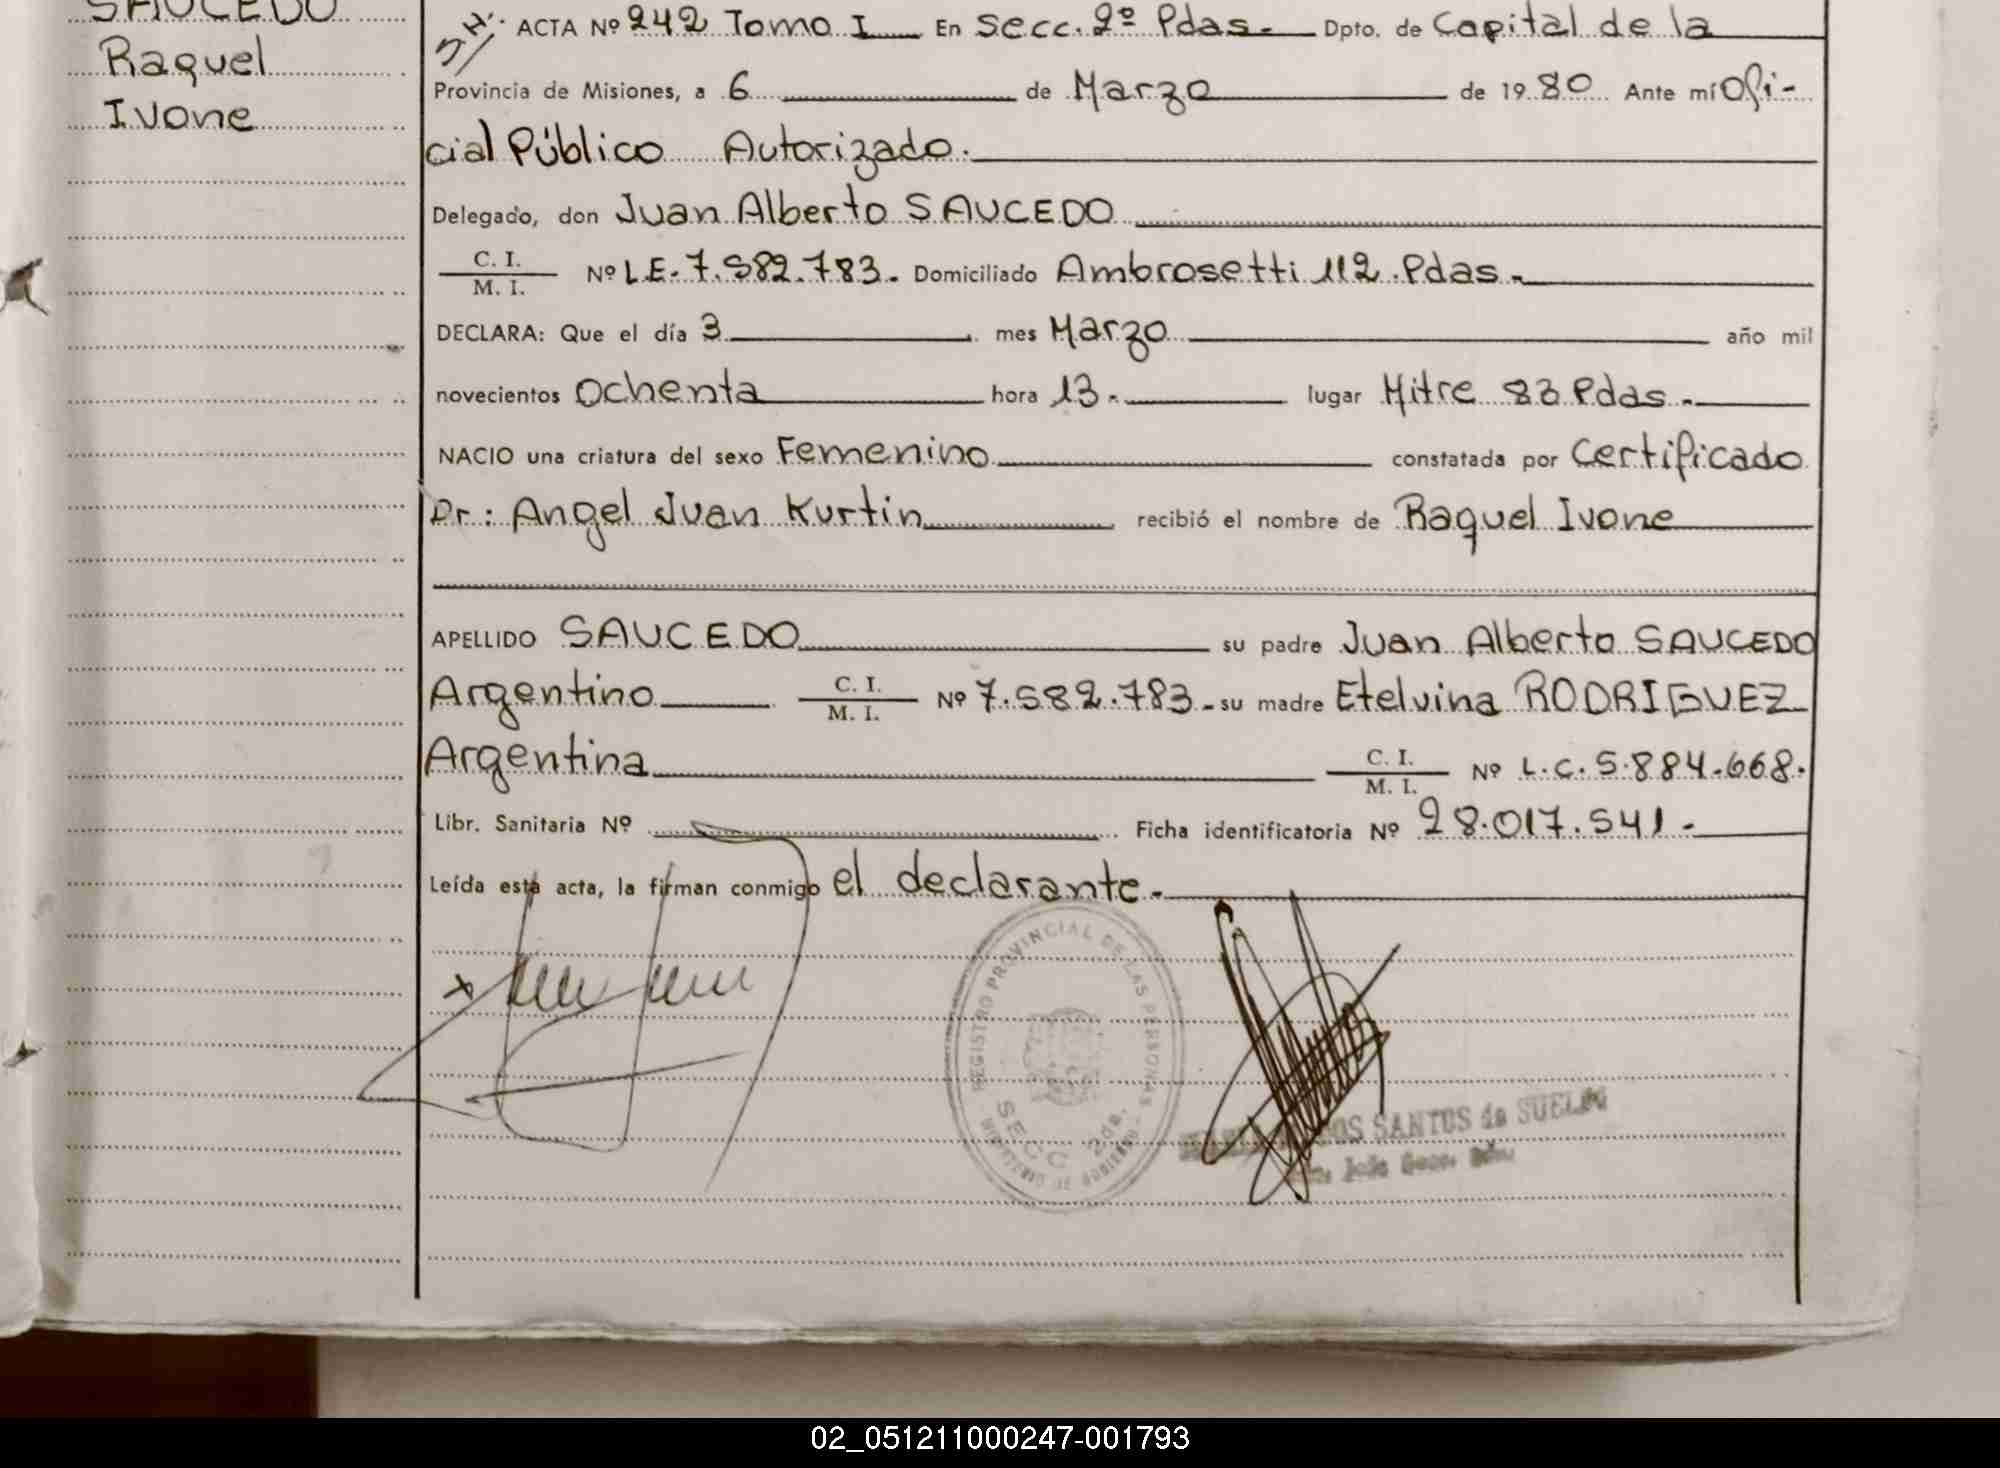 SAUCEDO
Raquel
Ivone
S.H. ACTA Nº 242 Tomo I En Secc. 2º Pdas.- Dpto. de Capital de la
Provincia de Misiones, a 6 de Marzo de 1980 Ante mí Ofi-
cial Público Autorizado.
Delegado, don Juan Alberto SAUCEDO
C. I.
M. I. Nº L.E. 7.582.783.- Domiciliado Ambrosetti 112 Pdas.-
DECLARA: Que el día 3 mes Marzo año mil
novecientos Ochenta hora 13.- lugar Mitre 83 Pdas.-
NACIO una criatura del sexo Femenino constatada por Certificado
Dr: Angel Juan Kurtin recibió el nombre de Raquel Ivone
APELLIDO SAUCEDO su padre Juan Alberto SAUCEDO
Argentino C. I.
M. I. Nº 7.582.783.- su madre Etelvina RODRIGUEZ
Argentina C. I.
M. I. Nº L.C. 5.884.668.
Libr. Sanitaria Nº Ficha identificatoria Nº 28.017.541.-
Leída esta acta, la firman conmigo el declarante.-
REGISTRO PROVINCIAL DE LAS PERSONAS
SECC. 2da.
SANTOS de SUELDO
02_051211000247-001793